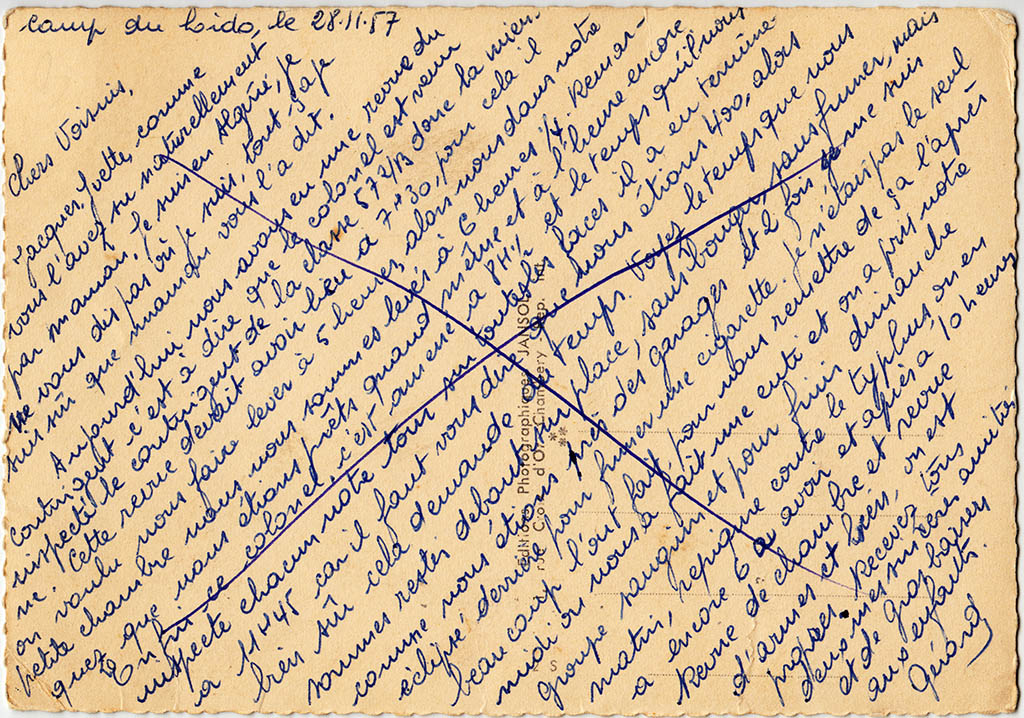 Camp du Lido, le 28.11.57
Chers Voisins,
Jacques, Yvette, comme
vous l'avez su naturellement
par maman, je suis en Algérie, je
ne vous dis pas où je suis, tout ça je
suis sûr que maman vous l'a dit.
Aujourd'hui nous avons eu une revue du
contingent c'est à dire que le colonel est venu
inspecter le contingent de la classe 57 2/B donc la mien-
ne. Cette revue devait avoir lieu à 7H30, pour cela il
on voulu nous faire lever à 5 heures, alors nous dans notre
petite chambre nous nous sommes levés à 6 heures 1/4. Remar-
quez que nous étions prêts quand même et à l'heure encore
Enfin ce colonel, c'est amené à 8H1/2 et le temps qu'il nous
inspecte chacun notre tour sur toutes les faces il a en terminé
à 11H45 car il faut vous dire que nous étions 400, alors
bien sûr cela demande du temps. Voyez le temps que nous
sommes restés debout sur place, sans bouger, sans fumer, mais
comme nous étions près des garages et 2 fois je me suis
éclipsé derrière pour fumer une cigarette. Je n'étais pas le seul
beaucoup l'ont fait pour nous remettre de ça l'après
midi on nous a fait une cuti et on a pris notre
groupe sanguin et pour finir dimanche
matin, repiqûre contre le typhus, on en
a encore 6 à avoir et après à 10 heures
Revue de chambre et revue
d'armes et bien, on est
propres. Recevez tous
deux mes sincères amitiés
et de gros baisers
aux enfants.
Gérard
Editions Photographiques JANSOL
Chambéry